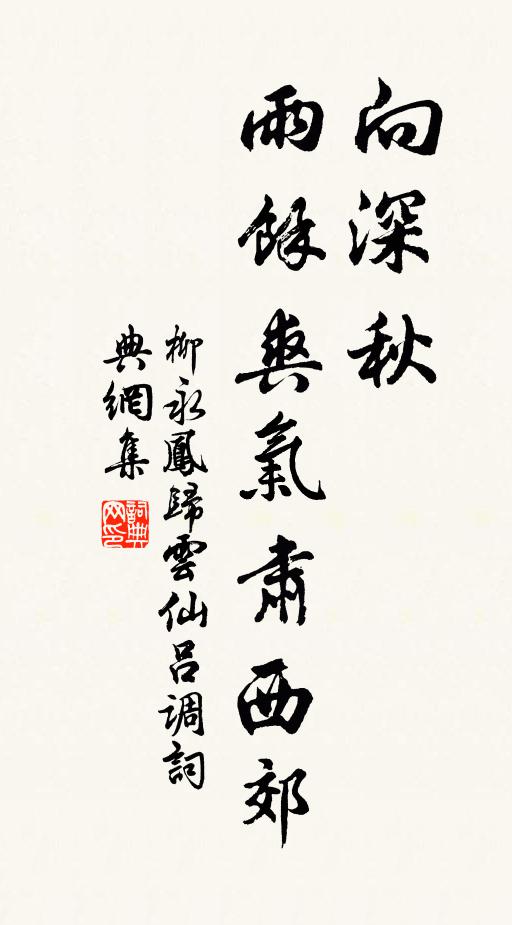 向深秋
雨餘爽氣肅西郊
柳永鳳歸雲仙呂调詞
典網集
詞典网印